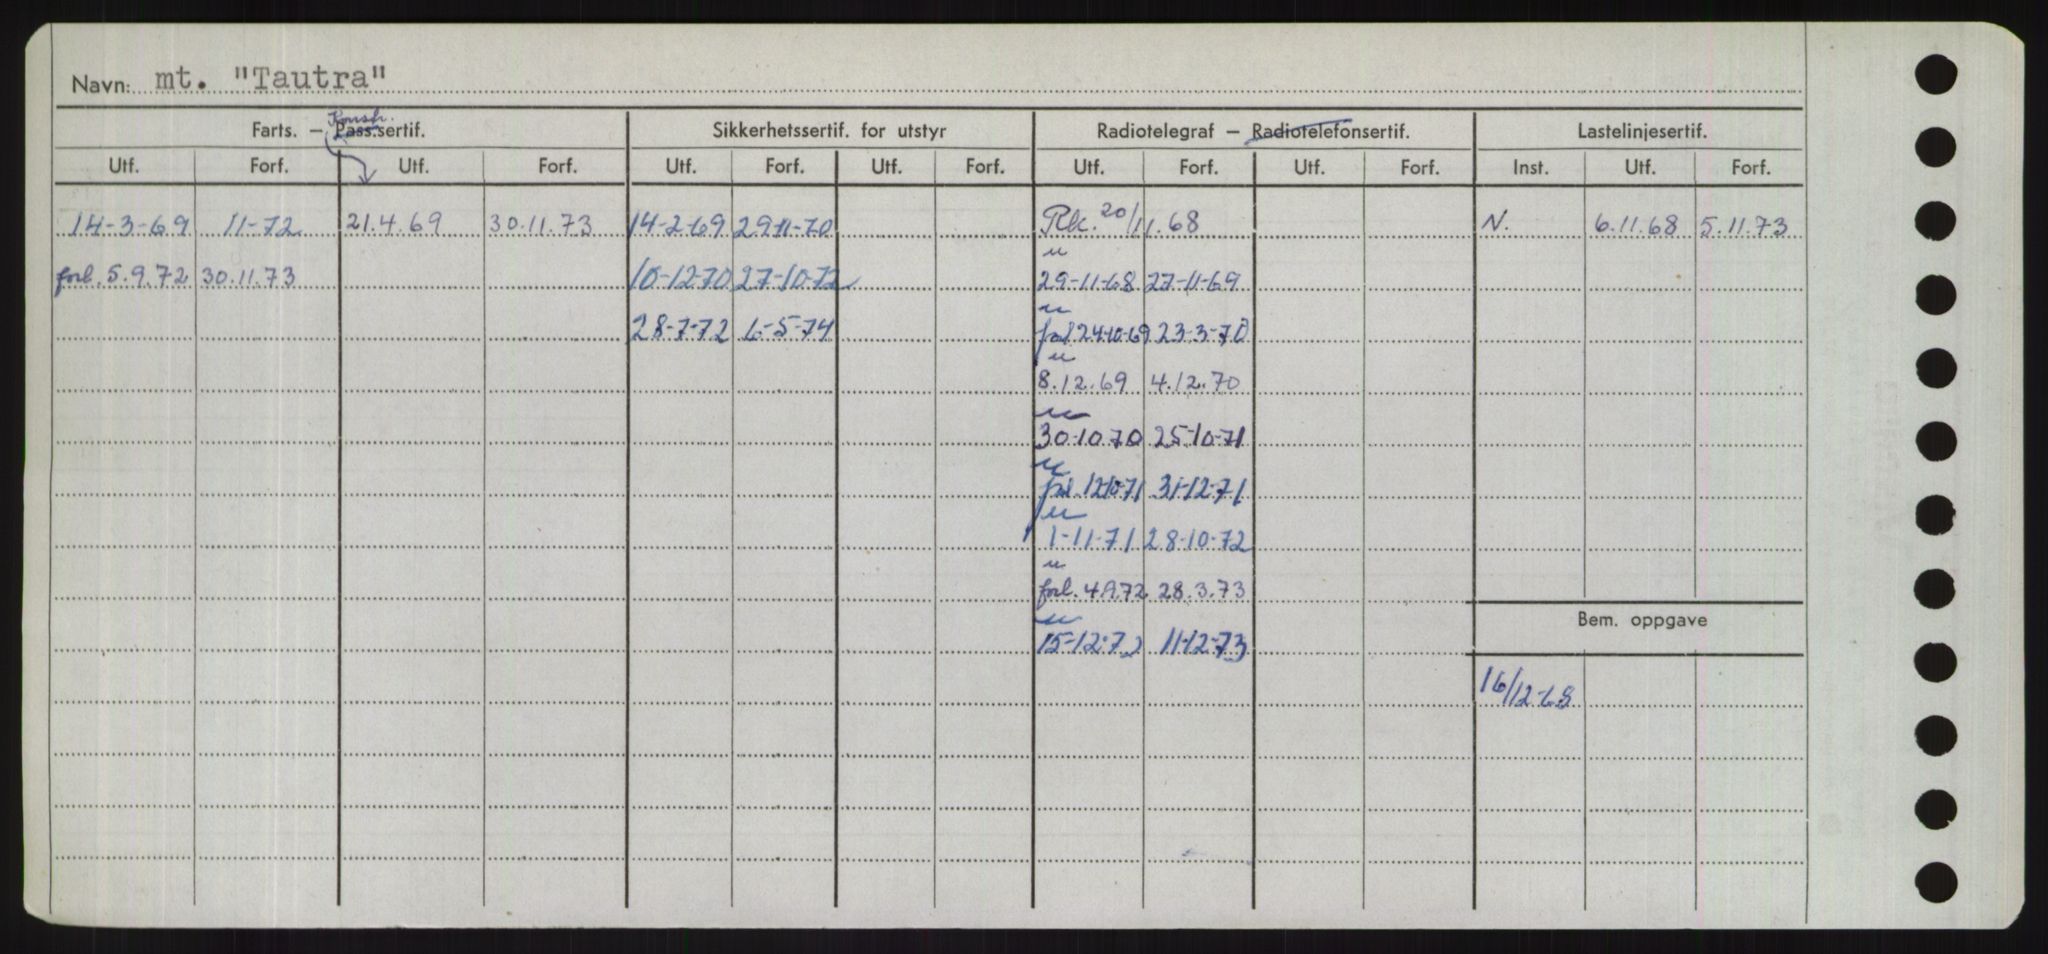 Navn: mt. "Tautra"
Konstr.
Farts. — Pass.sertif. Sikkerhetssertif. for utstyr Radiotelegraf — Radiotelefonsertif. Lastelinjesertif.
Utf. Forf. Utf. Forf. Utf. Forf. Utf. Forf. Utf. Forf. Utf. Forf. Inst. Utf. Forf.
14-3-69 11-72 21.4.69 30.11.73 14-2-69 29-11-70 20/11.68 N. 6.11.68 5.11.73
u
forl. 5.9.72 30.11.73 10-12-70 27-10-72 29-11-68 27-11-69
u
28-7-72 6-5-74 forl 24-10-69 23-3-70
u
8.12.69 4.12.70
u
30-10-70 25-10-71
u
forl. 12-10-71 31-12-71
u
1-11-71 28-10-72
u
forl. 4.9.72 28.3.73
Bem. oppgave
u
15-12-72 11-12-73
16/12-68